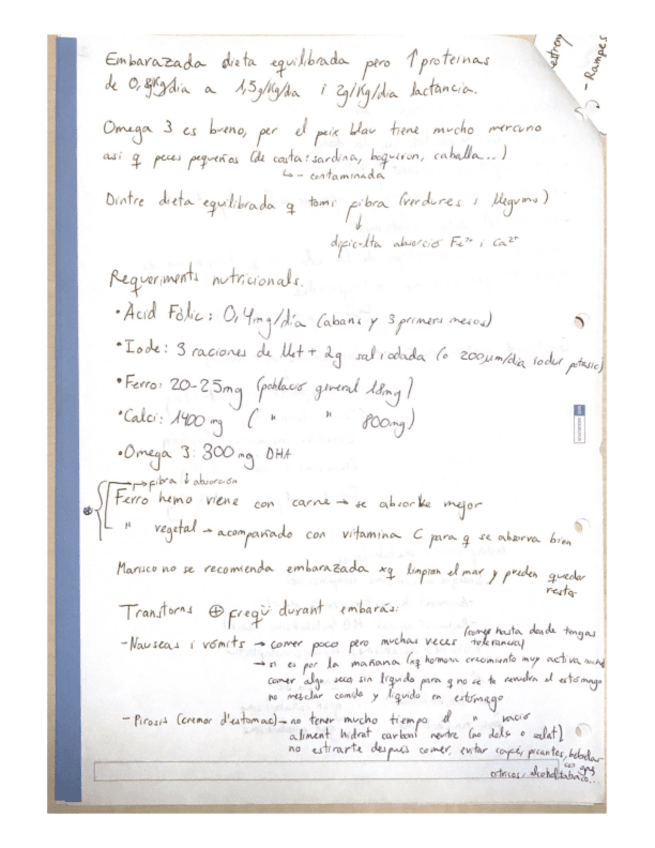 estreny
- Rampes
Embarazada dieta equilibrada pero ↑ proteinas
de 0,8g/Kg/dia a 1,5g/Kg/dia i 2g/Kg/dia lactancia.
Omega 3 es bueno, per el peix blau tiene mucho mercurio
asi q peces pequeños (de costa: sardina, boqueron, caballa...)
↳ - contaminada
Dintre dieta equilibrada q tomi fibra (verdures i llegums)
↓
dificulta absorció Fe²⁺ i Ca²⁺
Requeriments nutricionals.
• Àcid Fòlic: 0,4mg/día (abans y 3 primers mesos)
• Iode: 3 raciones de llet + 2g sal iodada (o 200µm/dia iodur potasic)
• Ferro: 20-25mg (població general 18mg)
• Calci: 1400 mg ( " " 800mg)
• Omega 3: 300 mg DHA
→ fibra ↓ absorción
Ferro hemo viene con carne → se absorbe mejor
" vegetal → acompañado con vitamina C para q se absorva bien
Marisco no se recomienda embarazada xq limpian el mar y pueden quedar
resta
Transtorns ⊕ freqü durant embaràs:
- Nauseas i vòmits → comer poco pero muchas veces (comer hasta donde tengas
tolerancia)
→ si es por la mañana (xq hormona crecimiento muy activa
comer algo seco sin líquido para q no se te remueva el estómago
no mezclar comida y líquido en estómago
- Pirosis (cremor d'estomac) → no tener mucho tiempo el " vacío
aliment hidrat carboni neutre (no dolç o salat)
no estirarte después comer, evitar café, picantes, bebidas
con gas
cítricos, alcohol, tabaco...